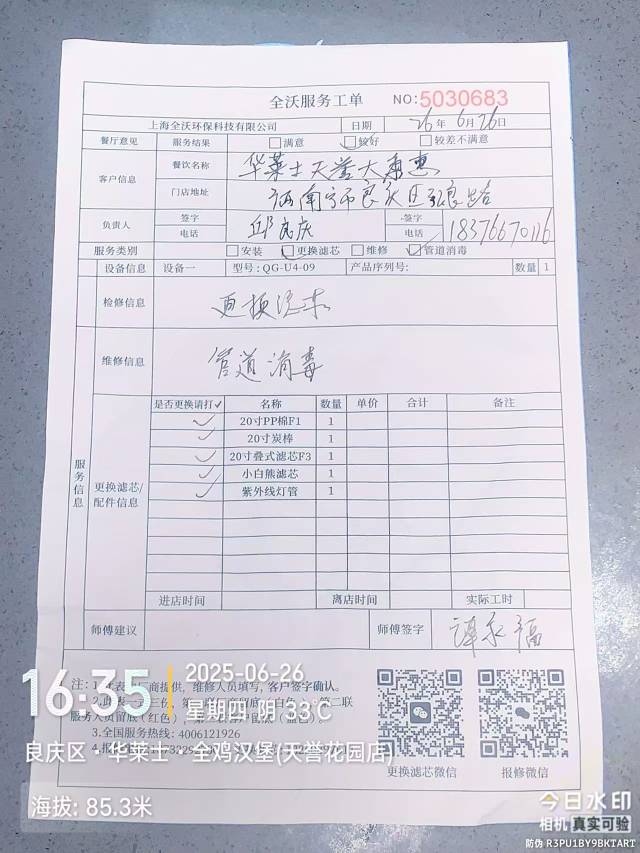 全沃服务工单 NO:5030683
上海全沃环保科技有限公司 日期 26年6月26日
餐厅意见 服务结果 满意 较好 较差不满意
客户信息 餐饮名称 华莱士天誉
门店地址 南宁市良庆区
负责人 签字 邱良庆 -签字
电话 电话 18376670116
服务类别 安装 更换滤芯 维修 管道消毒
设备信息 设备一 型号: QG-U4-09 产品序列号: 数量 1
检修信息 更换滤芯
维修信息 管道消毒
服务信息
更换滤芯/配件信息
是否更换请打✓ 名称 数量 单价 合计 备注
✓ 20寸PP棉F1 1
✓ 20寸炭棒 1
✓ 20寸叠式滤芯F3 1
✓ 小白熊滤芯 1
✓ 紫外线灯管 1
进店时间 离店时间 实际工时
师傅建议 师傅签字 谭永福
16:35 2025-06-26
星期四 阴 33℃
良庆区·华莱士·全鸡汉堡(天誉花园店)
海拔: 85.3米
3.全国服务热线: 4006121926
更换滤芯微信 报修微信
今日水印
相机 真实可验
防伪 R3PU1BY9BKTART